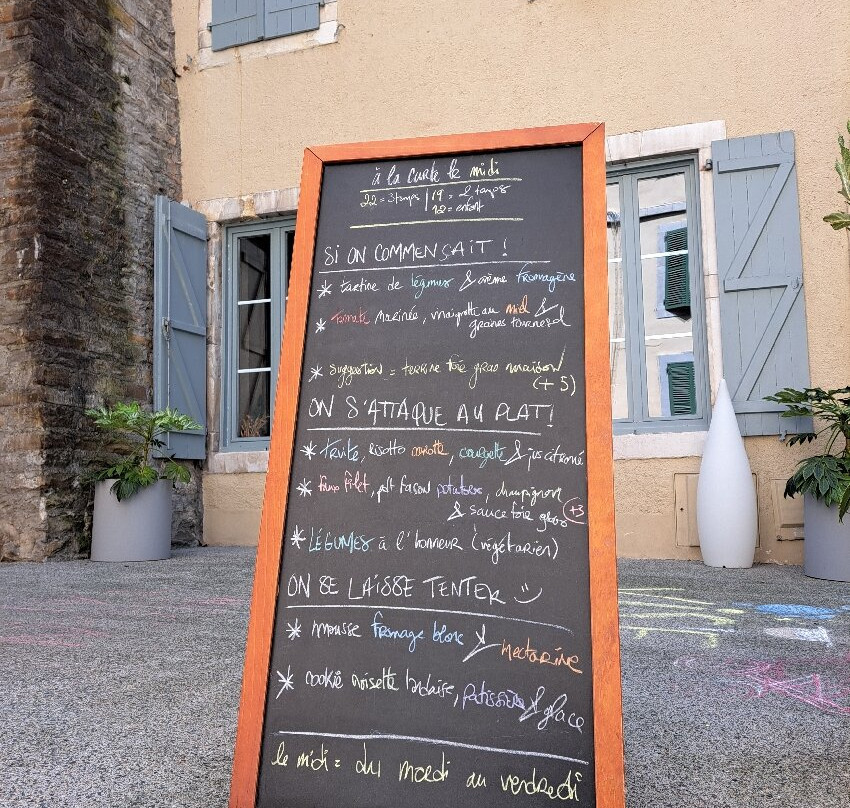 à la carte le midi
22 = 3 temps | 19 = 2 temps
12 = enfant
SI ON COMMENÇAIT !
* tartine de légumes & crème fromagère
* tomate marinée, vinaigrette au miel &
graines tournesol
* suggestion = terrine foie gras maison
(+5)
ON S'ATTAQUE AU PLAT !
* truite, risotto carotte, courgette & jus citronné
* faux filet, pdt façon potatoes, champignon
& sauce foie gras +3
* LÉGUMES à l'honneur (végétarien)
ON SE LAISSE TENTER
* mousse fromage blanc & nectarine
* cookie noisette landaise, patissière & glace
le midi = du mardi au vendredi